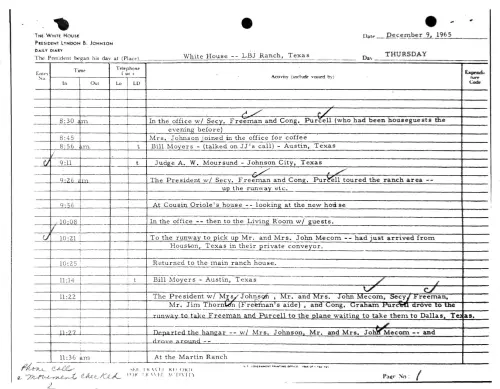 THE WHITE HOUSE
PRESIDENT LYNDON B. JOHNSON
DAILY DIARY
Date December 9, 1965
The President began his day at (Place) White House -- LBJ Ranch, Texas Day THURSDAY
Entry No. Time Telephone Activity (include visited by) Expenditure Code
In Out Lo LD
8:30 am In the office w/ Secy. Freeman and Cong. Purcell (who had been houseguests the
evening before)
8:45 Mrs. Johnson joined in the office for coffee
8:56 am t Bill Moyers - (talked on JJ's call) - Austin, Texas
9:11 t Judge A. W. Moursund - Johnson City, Texas
9:26 am The President w/ Secy. Freeman and Cong. Purcell toured the ranch area --
up the runway etc.
9:56 At Cousin Oriole's house -- looking at the new house
10:08 In the office -- then to the Living Room w/ guests.
10:21 To the runway to pick up Mr. and Mrs. John Mecom -- had just arrived from
Houston, Texas in their private conveyor.
10:25 Returned to the main ranch house.
11:14 t Bill Moyers - Austin, Texas
11:22 The President w/ Mrs. Johnson, Mr. and Mrs. John Mecom, Secy. Freeman,
Mr. Jim Thornton (Freeman's aide), and Cong. Graham Purcell drove to the
runway to take Freeman and Purcell to the plane waiting to take them to Dallas, Texas.
11:27 Departed the hangar -- w/ Mrs. Johnson, Mr. and Mrs. John Mecom -- and
drove around --
11:36 am At the Martin Ranch
Phone calls
& movement checked
SEE TRAVEL RECORD
FOR TRAVEL ACTIVITY
Page No. 1